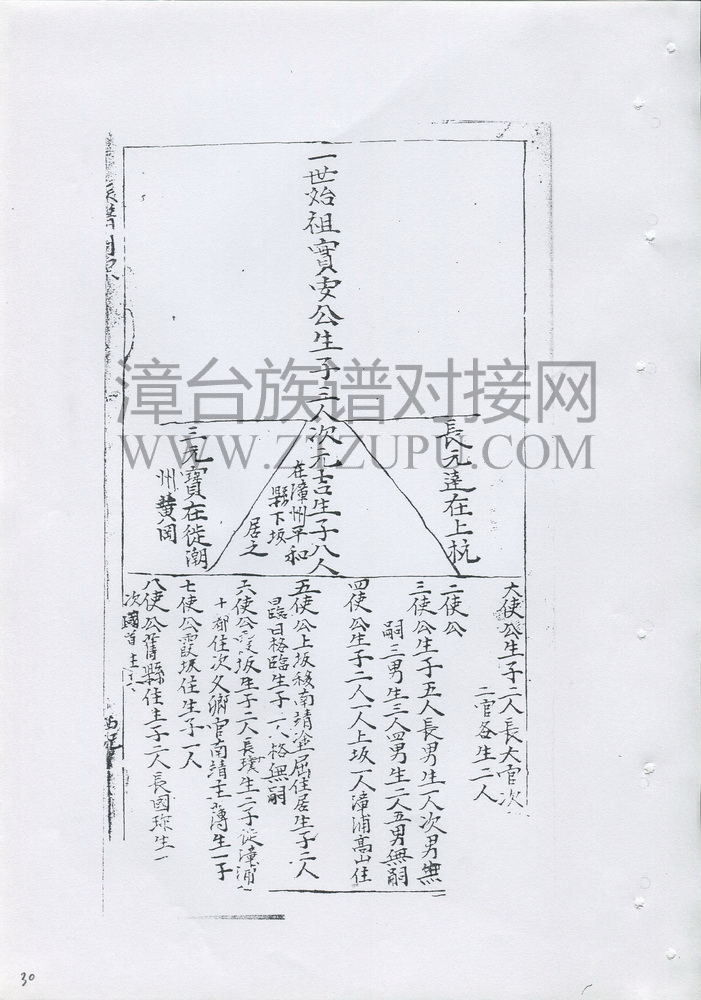 一世始祖實安公生子三人次元吉生子八人
在漳州平和
縣下坂
居之
長元達在上杭
三元寶在徙潮
州黄冈
大使公生子二人長大官次
二官各生二人
二使公
三使公生子五人長男生一人次男無
嗣三男生三人四男生二人五男無嗣
四使公生子二人一人上坂一人漳浦高山住
五使公上坂移南靖塗屈住居生子二人
日格臨生子一人格無嗣
六使公霞坂生子二人長璞生二子徙漳浦
十都住次文卿官南靖主簿生一子
七使公霞坂住生子一人
八使公舊縣住生子二人長國珍生一
次國首生
漳台族谱对接网
WWW.ZTZUPU.COM
30